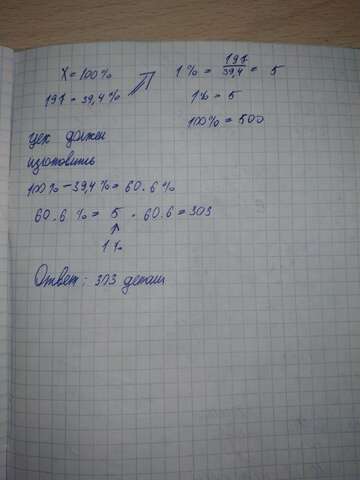 X = 100%
197 = 39,4%
1% = 197/39,4 = 5
1% = 5
100% = 500
цех должен
изготовить
100% - 39,4% = 60.6%
60.6% = 5 · 60.6 = 303
↑
1%
Ответ: 303 детали